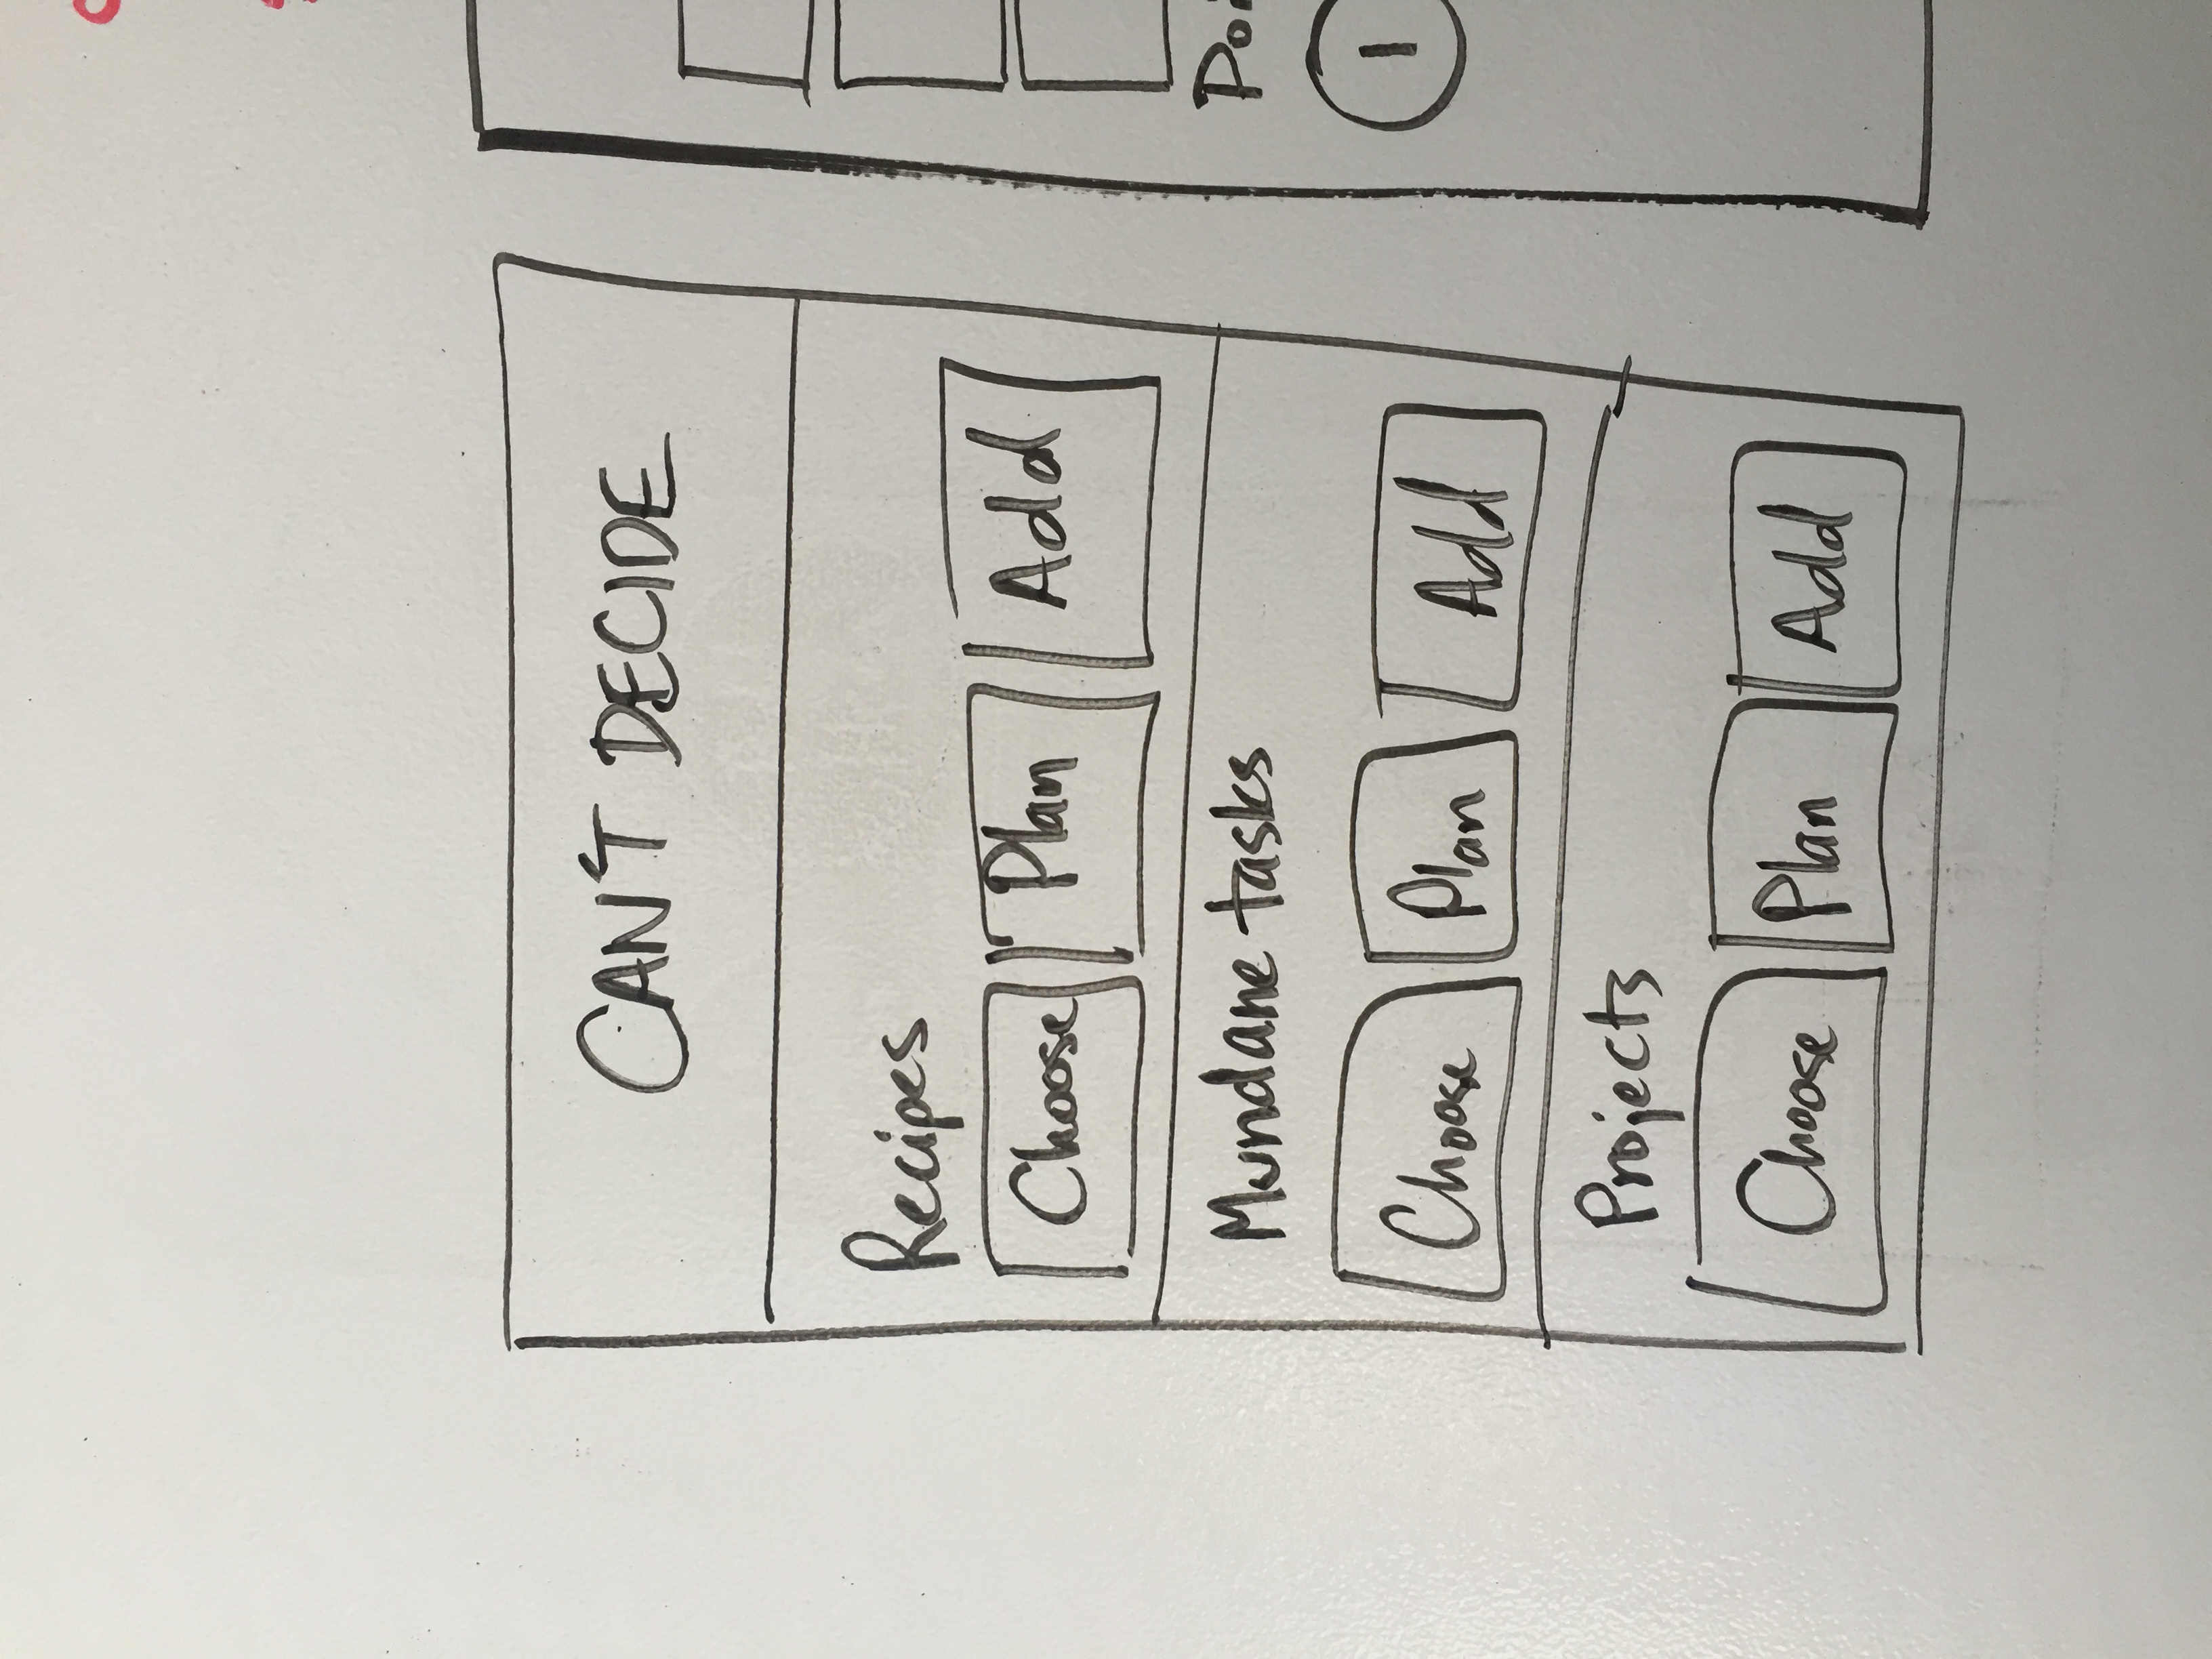 CAN'T DECIDE
Recipes
Choose Plan Add
Mundane tasks
Choose Plan Add
Projects
Choose Plan Add
1